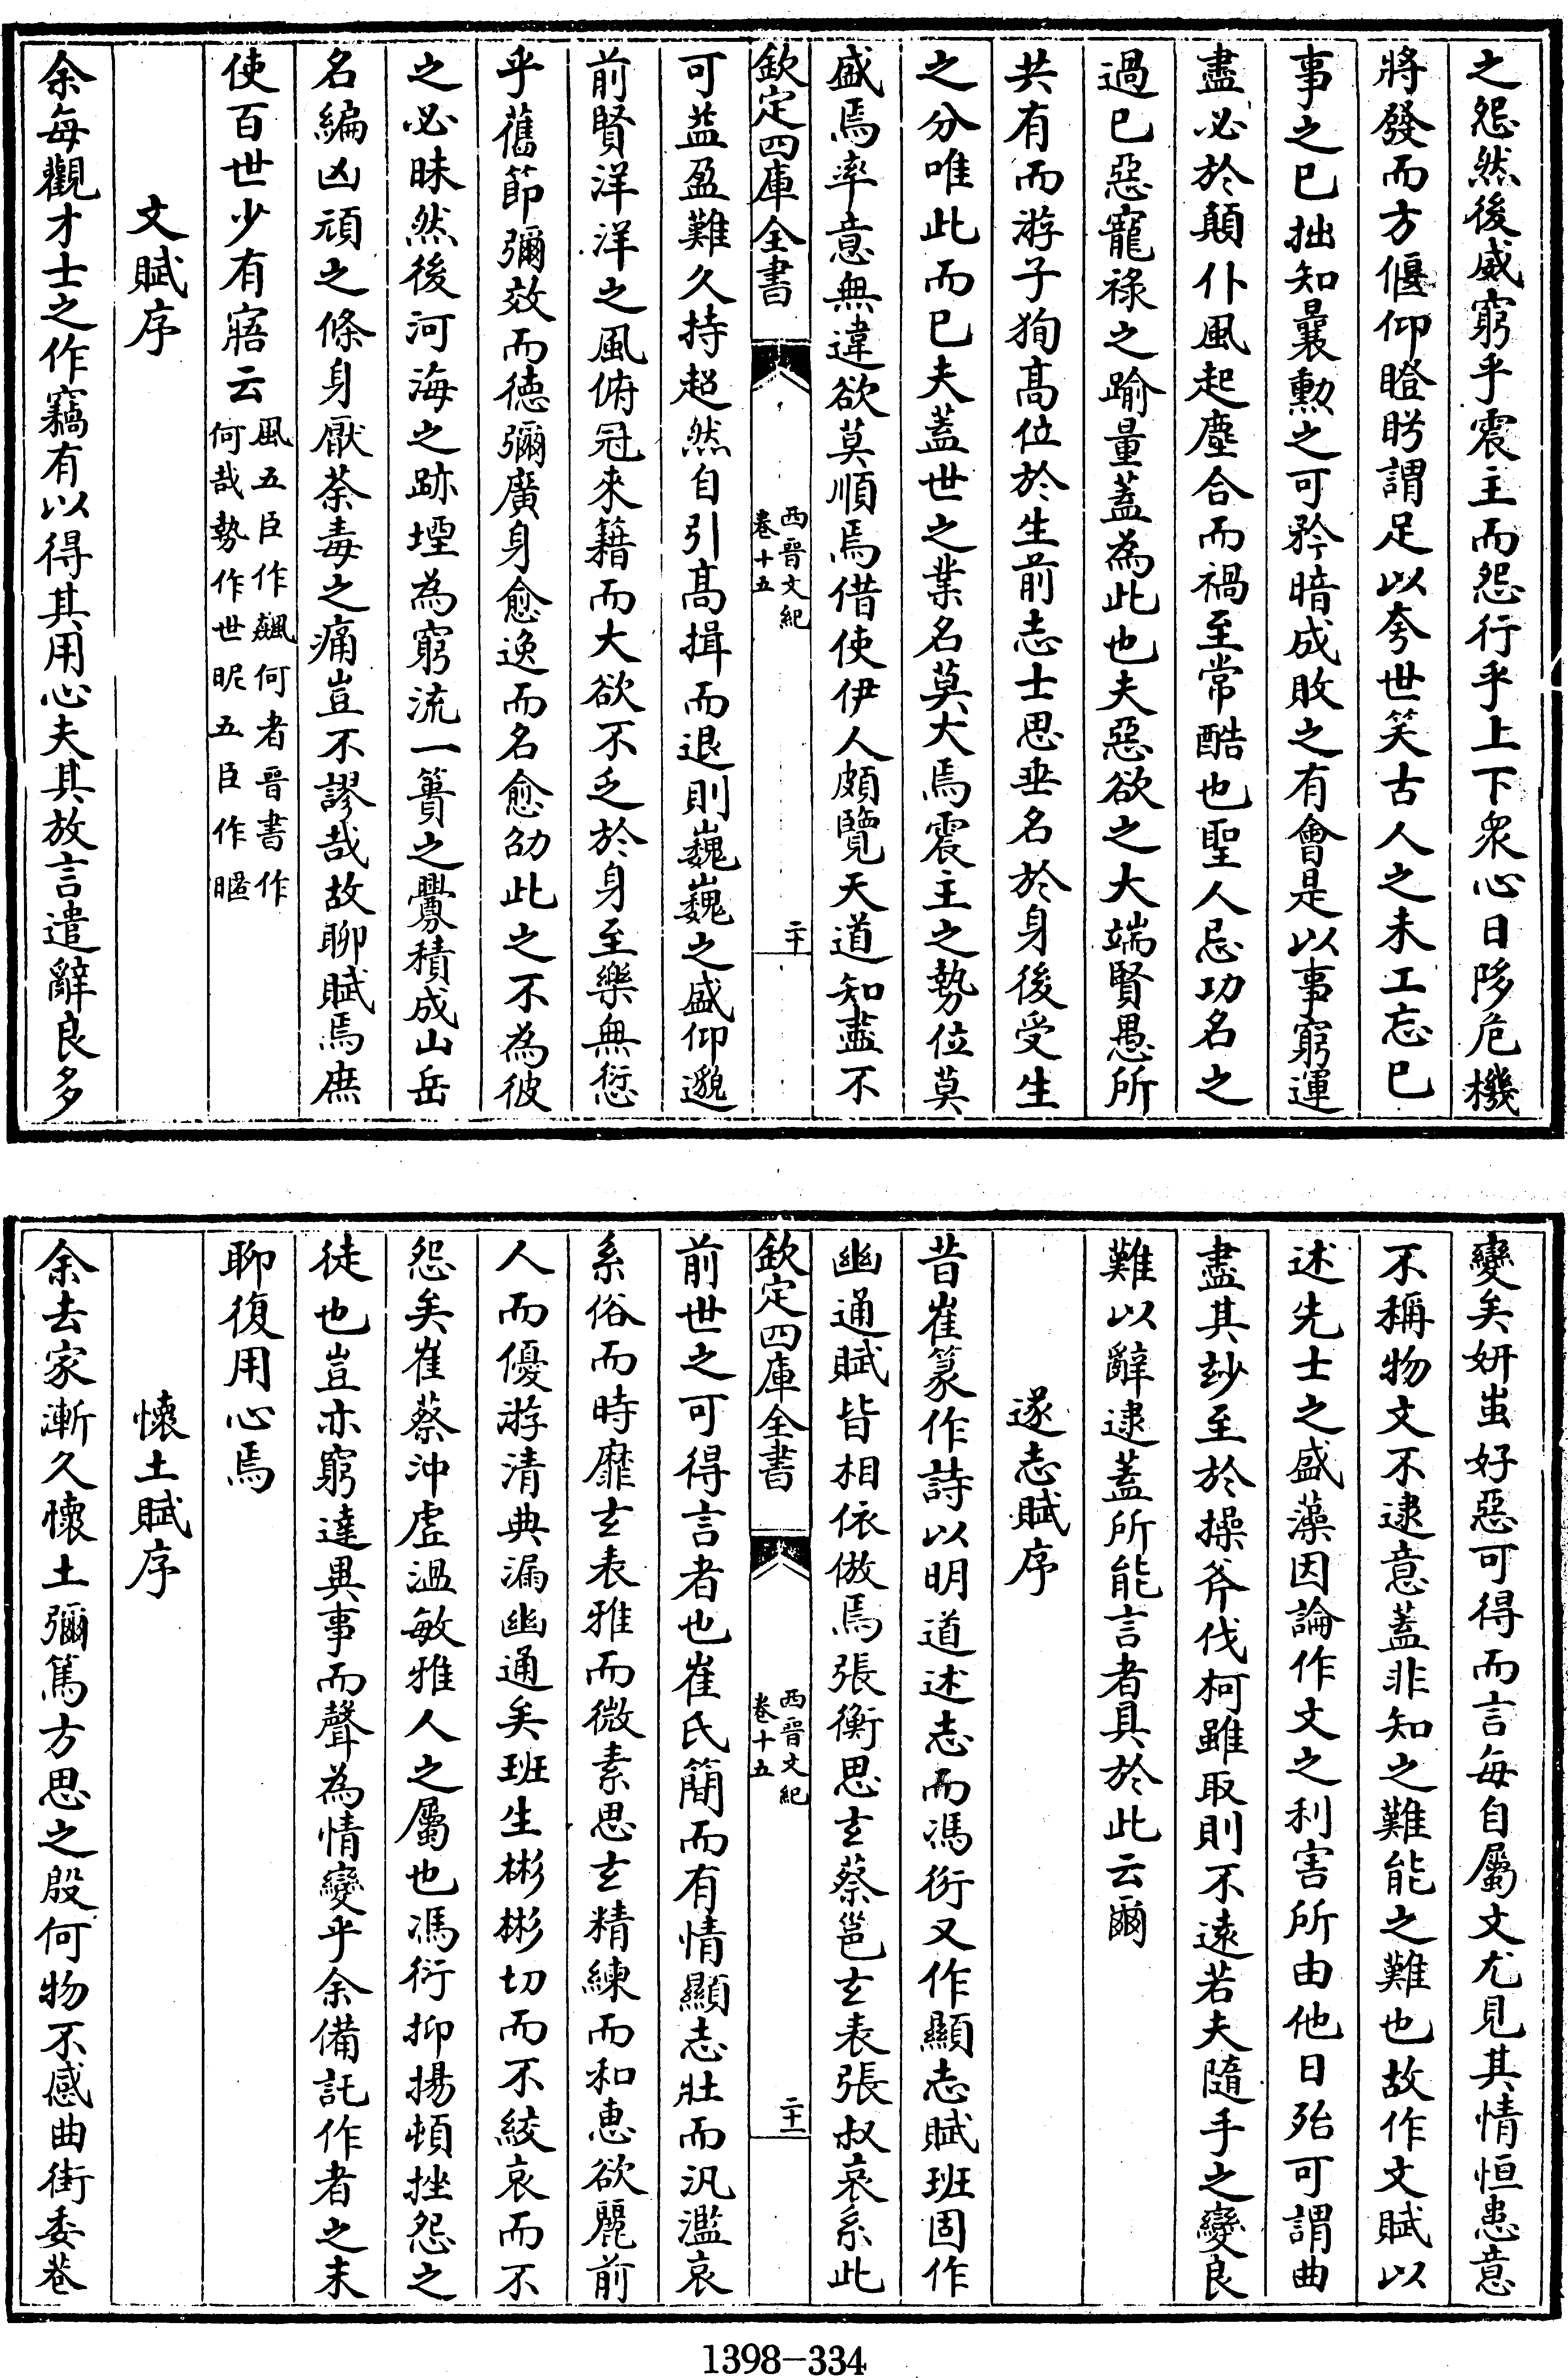 之怨然後威窮乎震主而怨行乎上下衆心日陊危機
將發而方偃仰瞪眄謂足以夸世笑古人之未工忘已
事之已拙知曩勲之可矜暗成敗之有會是以事窮運
盡必於顛仆風起塵合而禍至常酷也聖人忌功名之
過已惡寵祿之踰量蓋為此也夫惡欲之大端賢愚所
共有而游子狥髙位於生前志士思垂名於身後受生
之分唯此而已夫蓋世之業名莫大焉震主之勢位莫
盛焉率意無違欲莫順焉借使伊人頗覽天道知盡不
欽定四庫全書
西晉文紀
卷十五
二十
可益盈難久持超然自引髙揖而退則巍巍之盛仰邈
前賢洋洋之風俯冠來籍而大欲不乏於身至樂無愆
乎舊節彌效而德彌廣身愈逸而名愈劭此之不為彼
之必昧然後河海之跡堙為窮流一簣之釁積成山岳
名編凶頑之條身厭荼毒之痛豈不謬哉故聊賦焉庶
使百世少有寤云
風五臣作飆何者晉書作
何哉勢作世眤五臣作暱
文賦序
余每觀才士之作竊有以得其用心夫其放言遣辭良多
變矣妍蚩好惡可得而言每自屬文尤見其情恒患意
不稱物文不逮意蓋非知之難能之難也故作文賦以
述先士之盛藻因論作文之利害所由他日殆可謂曲
盡其玅至於操斧伐柯雖取則不遠若夫隨手之變良
難以辭逮蓋所能言者具於此云爾
遂志賦序
昔崔篆作詩以明道述志而馮衍又作顯志賦班固作
幽通賦皆相依倣焉張衡思𤣥蔡邕𤣥表張叔哀系此
欽定四庫全書
西晉文紀
卷十五
二十一
前世之可得言者也崔氏簡而有情顯志壯而汎濫哀
系俗而時靡𤣥表雅而微素思𤣥精練而和惠欲麗前
人而優游清典漏幽通矣班生彬彬切而不絞哀而不
怨矣崔蔡沖虛溫敏雅人之屬也馮衍抑揚頓挫怨之
徒也豈亦窮達異事而聲為情變乎余備託作者之末
聊復用心焉
懷土賦序
余去家漸久懷土彌篤方思之殷何物不感曲街委巷
1398-334